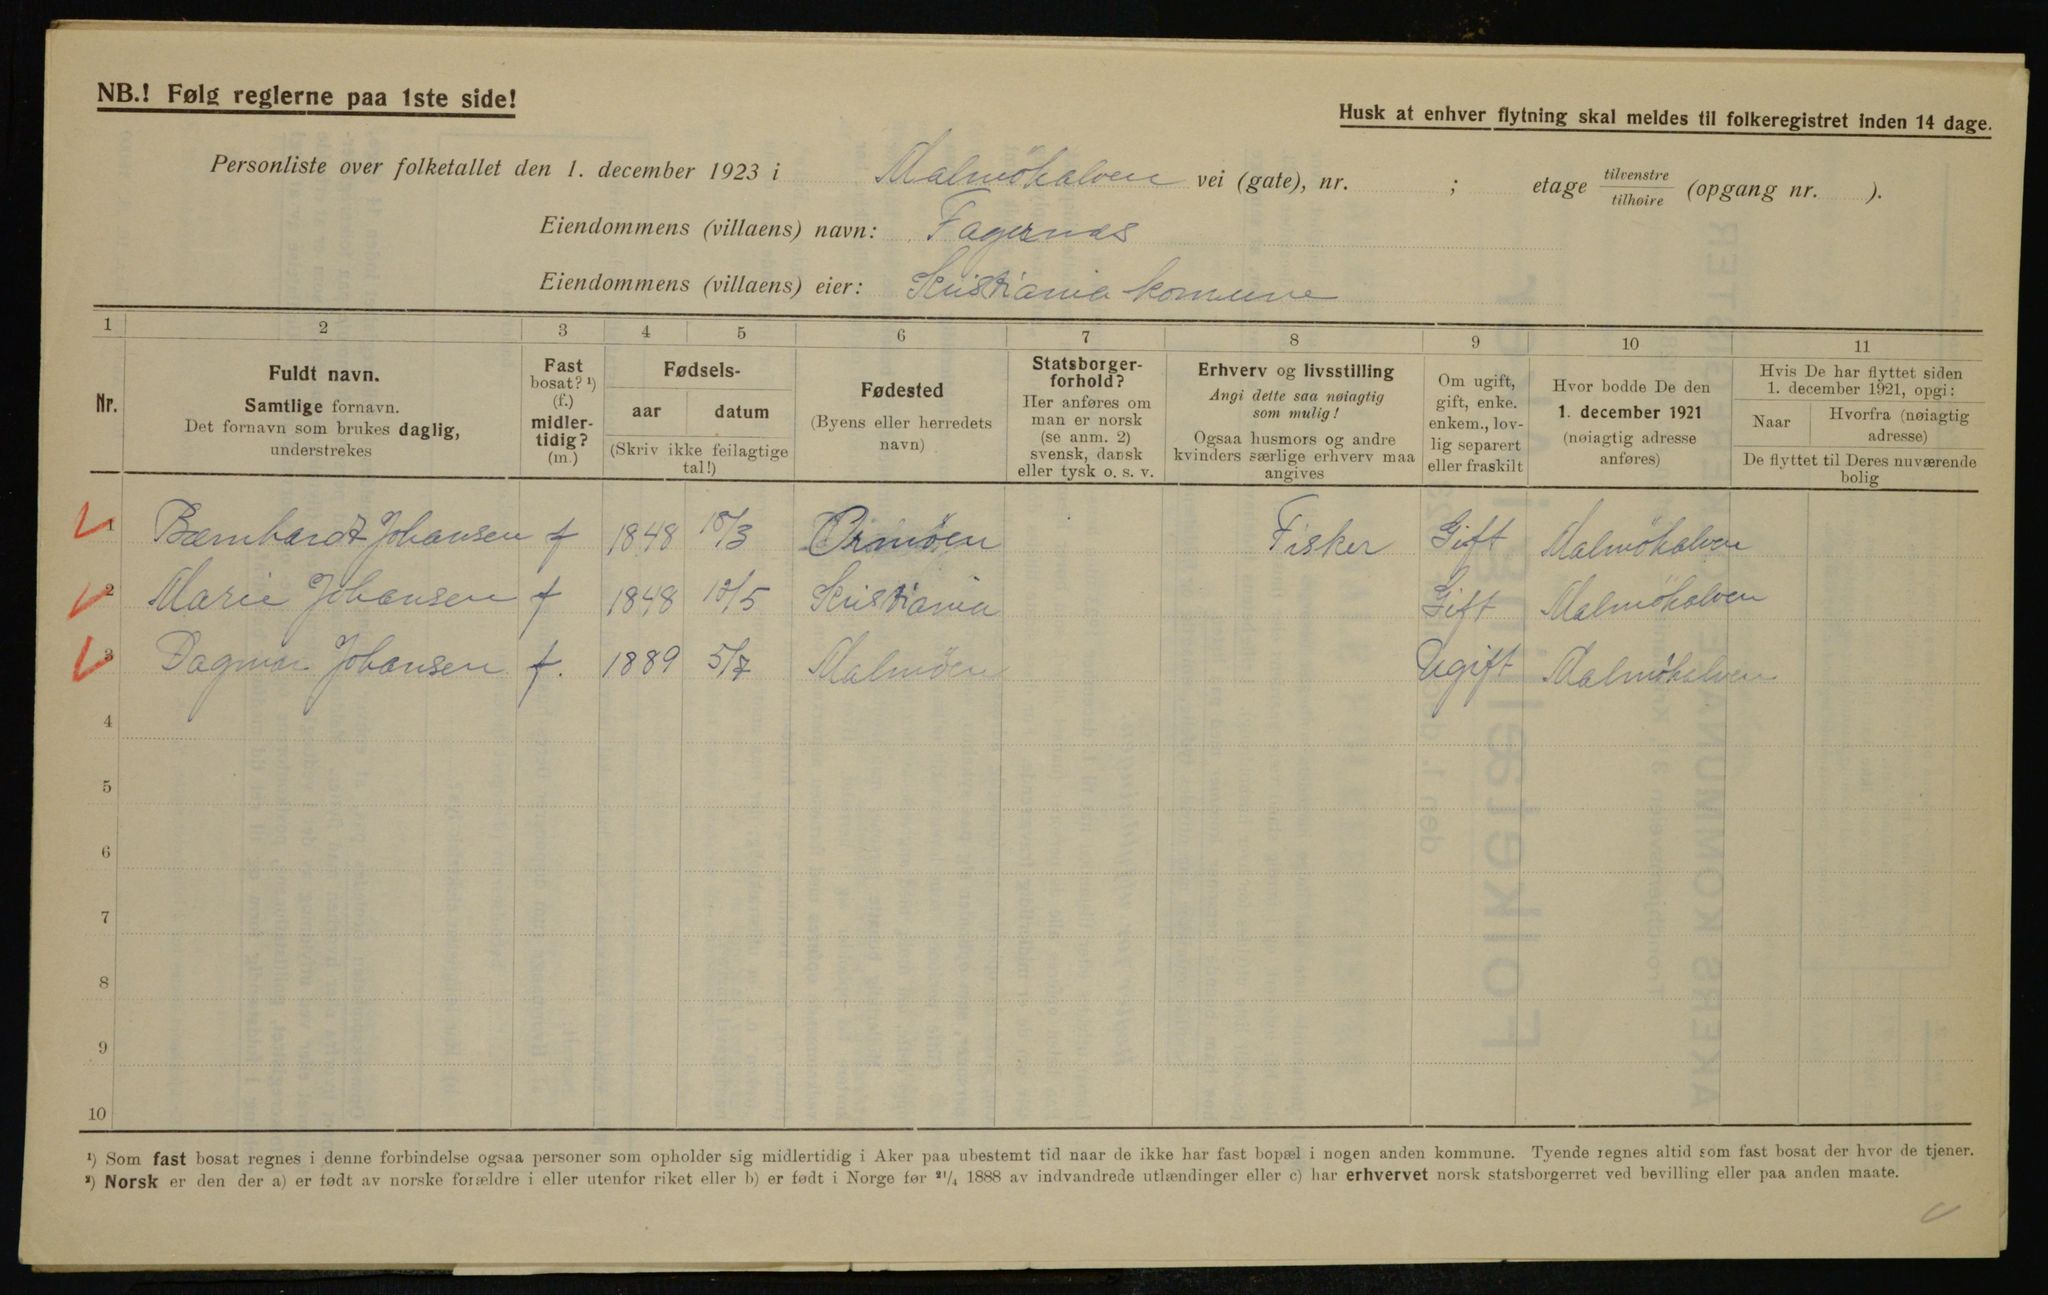 NB.! Følg reglerne paa 1ste side!
Husk at enhver flytning skal meldes til folkeregistret inden 14 dage.
Personliste over folketallet den 1. december 1923 i Malmöhalven vei (gate), nr. ; etage tilvenstre / tilhøire (opgang nr. ).
Eiendommens (villaens) navn: Fagernes
Eiendommens (villaens) eier: Kristiania komune
1 2 3 4 5 6 7 8 9 10 11
Nr.
Fuldt navn.
Samtlige fornavn.
Det fornavn som brukes daglig,
understrekes
Fast
bosat? ¹)
(f.)
midler-
tidig?
(m.)
Fødsels-
aar datum
(Skriv ikke feilagtige
tal!)
Fødested
(Byens eller herredets
navn)
Statsborger-
forhold?
Her anføres om
man er norsk
(se anm. 2)
svensk, dansk
eller tysk o. s. v.
Erhverv og livsstilling
Angi dette saa nøiagtig
som mulig!
Ogsaa husmors og andre
kvinders særlige erhverv maa
angives
Om ugift,
gift, enke.
enkem., lov-
lig separert
eller fraskilt
Hvor bodde De den
1. december 1921
(nøiagtig adresse
anføres)
Hvis De har flyttet siden
1. december 1921, opgi:
Naar Hvorfra (nøiagtig
adresse)
De flyttet til Deres nuværende
bolig
1 Bærnhardt Johansen f 1848 18/3 Ormöen Fisker Gift Malmöhalven
2 Marie Johansen f 1848 10/5 Kristiania Gift Malmöhalven
3 Dagmar Johansen f. 1889 5/7 Malmöen Ugift Malmöhalven
4
5
6
7
8
9
10
¹) Som fast bosat regnes i denne forbindelse ogsaa personer som opholder sig midlertidig i Aker paa ubestemt tid naar de ikke har fast bopæl i nogen anden kommune. Tyende regnes altid som fast bosat der hvor de tjener.
²) Norsk er den der a) er født av norske forældre i eller utenfor riket eller b) er født i Norge før ²¹/₄ 1888 av indvandrede utlændinger eller c) har erhvervet norsk statsborgerret ved bevilling eller paa anden maate.